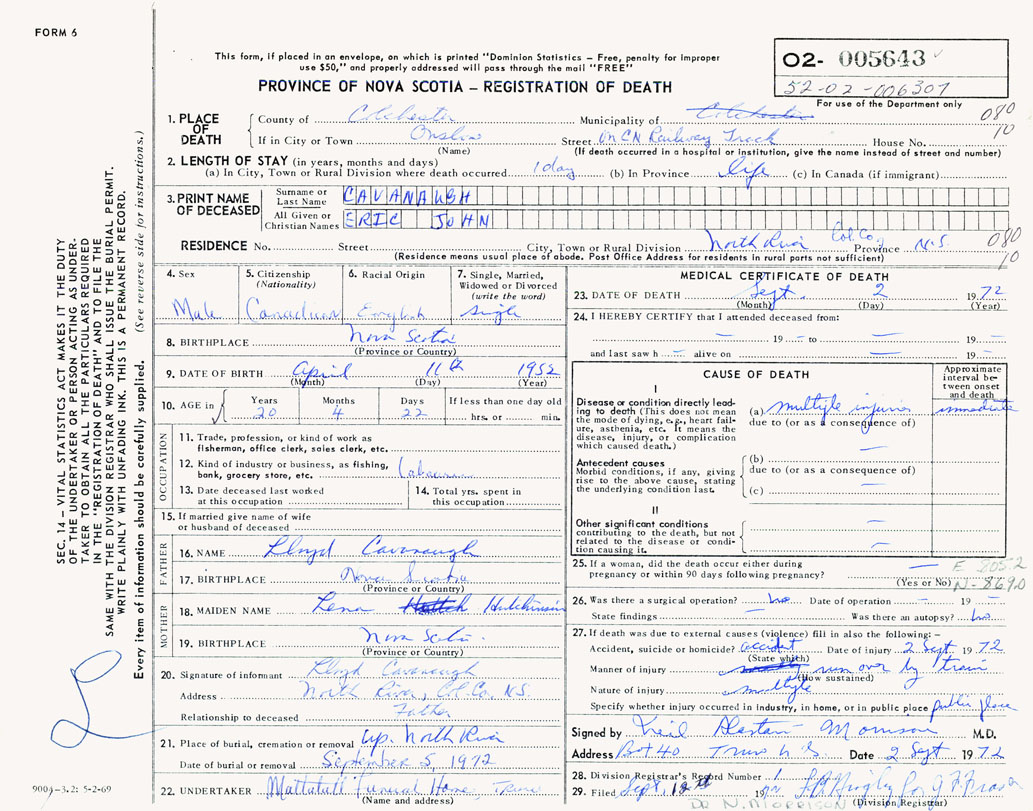 FORM 6
This form, if placed in an envelope, on which is printed "Dominion Statistics – Free, penalty for improper
use $50," and properly addressed will pass through the mail "FREE"
PROVINCE OF NOVA SCOTIA – REGISTRATION OF DEATH
02- 005643
52-02-006307
For use of the Department only
080
10
1. PLACE OF DEATH
County of Colchester Municipality of Colchester
If in City or Town Onslow Street On CN Railway Track House No.
(Name) (If death occurred in a hospital or institution, give the name instead of street and number)
2. LENGTH OF STAY (in years, months and days)
(a) In City, Town or Rural Division where death occurred 1 day (b) In Province life (c) In Canada (if immigrant)
3. PRINT NAME OF DECEASED
Surname or Last Name CAVANAUGH
All Given or Christian Names ERIC JOHN
RESIDENCE No. Street City, Town or Rural Division North River Col. Co. Province N.S. 080
(Residence means usual place of abode. Post Office Address for residents in rural parts not sufficient) 10
4. Sex Male
5. Citizenship (Nationality) Canadian
6. Racial Origin English
7. Single, Married, Widowed or Divorced (write the word) single
8. BIRTHPLACE Nova Scotia
(Province or Country)
9. DATE OF BIRTH April 11th 1952
(Month) (Day) (Year)
10. AGE in Years 20 Months 4 Days 22 If less than one day old hrs. or min.
OCCUPATION
11. Trade, profession, or kind of work as
fisherman, office clerk, sales clerk, etc.
12. Kind of industry or business, as fishing,
bank, grocery store, etc. Labourer
13. Date deceased last worked
at this occupation
14. Total yrs. spent in
this occupation
15. If married give name of wife
or husband of deceased
FATHER
16. NAME Lloyd Cavanaugh
17. BIRTHPLACE Nova Scotia
(Province or Country)
MOTHER
18. MAIDEN NAME Lena Hutchinson
19. BIRTHPLACE Nova Scotia
(Province or Country)
20. Signature of informant Lloyd Cavanaugh
Address North River, Col. Co. N.S.
Relationship to deceased Father
21. Place of burial, cremation or removal Up. North River
Date of burial or removal September 5, 1972
22. UNDERTAKER Mattatall Funeral Home Truro
(Name and address)
MEDICAL CERTIFICATE OF DEATH
23. DATE OF DEATH Sept. 2 1972
(Month) (Day) (Year)
24. I HEREBY CERTIFY that I attended deceased from:
– 19 – to – 19 –
and last saw h – alive on – 19 –
CAUSE OF DEATH
Approximate interval between onset and death
I
Disease or condition directly lead-
ing to death (This does not mean
the mode of dying, e.g., heart fail-
ure, asthenia, etc. It means the
disease, injury, or complication
which caused death.)
(a) multiple injuries immediate
due to (or as a consequence of)
Antecedent causes
Morbid conditions, if any, giving
rise to the above cause, stating
the underlying condition last.
(b) –
due to (or as a consequence of)
(c) –
II
Other significant conditions
contributing to the death, but not
related to the disease or condi-
tion causing it.
25. If a woman, did the death occur either during
pregnancy or within 90 days following pregnancy? –
(Yes or No)
E 8052
N-8690
26. Was there a surgical operation? no Date of operation – 19 –
State findings – Was there an autopsy? no
27. If death was due to external causes (violence) fill in also the following:–
Accident, suicide or homicide? accident Date of injury 2 Sept 1972
(State which)
Manner of injury run over by train
(How sustained)
Nature of injury multiple
Specify whether injury occurred in industry, in home, or in public place public place
Signed by Neil Alastair Morrison M.D.
Address Box 40 Truro N.S. Date 2 Sept 1972
28. Division Registrar's Record Number
29. Filed Sept. 19
(Division Registrar)
DR N. MORRISON
SEC. 14 – VITAL STATISTICS ACT MAKES IT THE DUTY
OF THE UNDERTAKER OR PERSON ACTING AS UNDER-
TAKER TO OBTAIN ALL THE PARTICULARS REQUIRED
IN THE "REGISTRATION OF DEATH" AND TO FILE THE
SAME WITH THE DIVISION REGISTRAR WHO SHALL ISSUE THE BURIAL PERMIT.
WRITE PLAINLY WITH UNFADING INK. THIS IS A PERMANENT RECORD.
Every item of information should be carefully supplied. (See reverse side for instructions.)
9004-3.2: 5-2-69